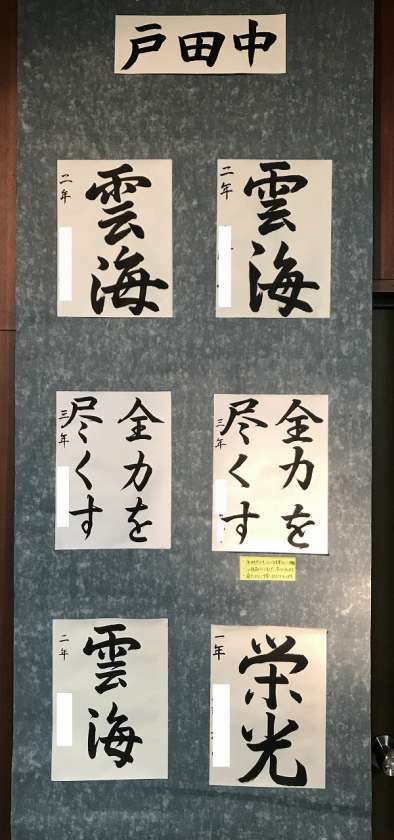 戸田中
雲海
二年
雲海
二年
全力を
尽くす
三年
全力を
尽くす
三年
栄光
一年
雲海
二年